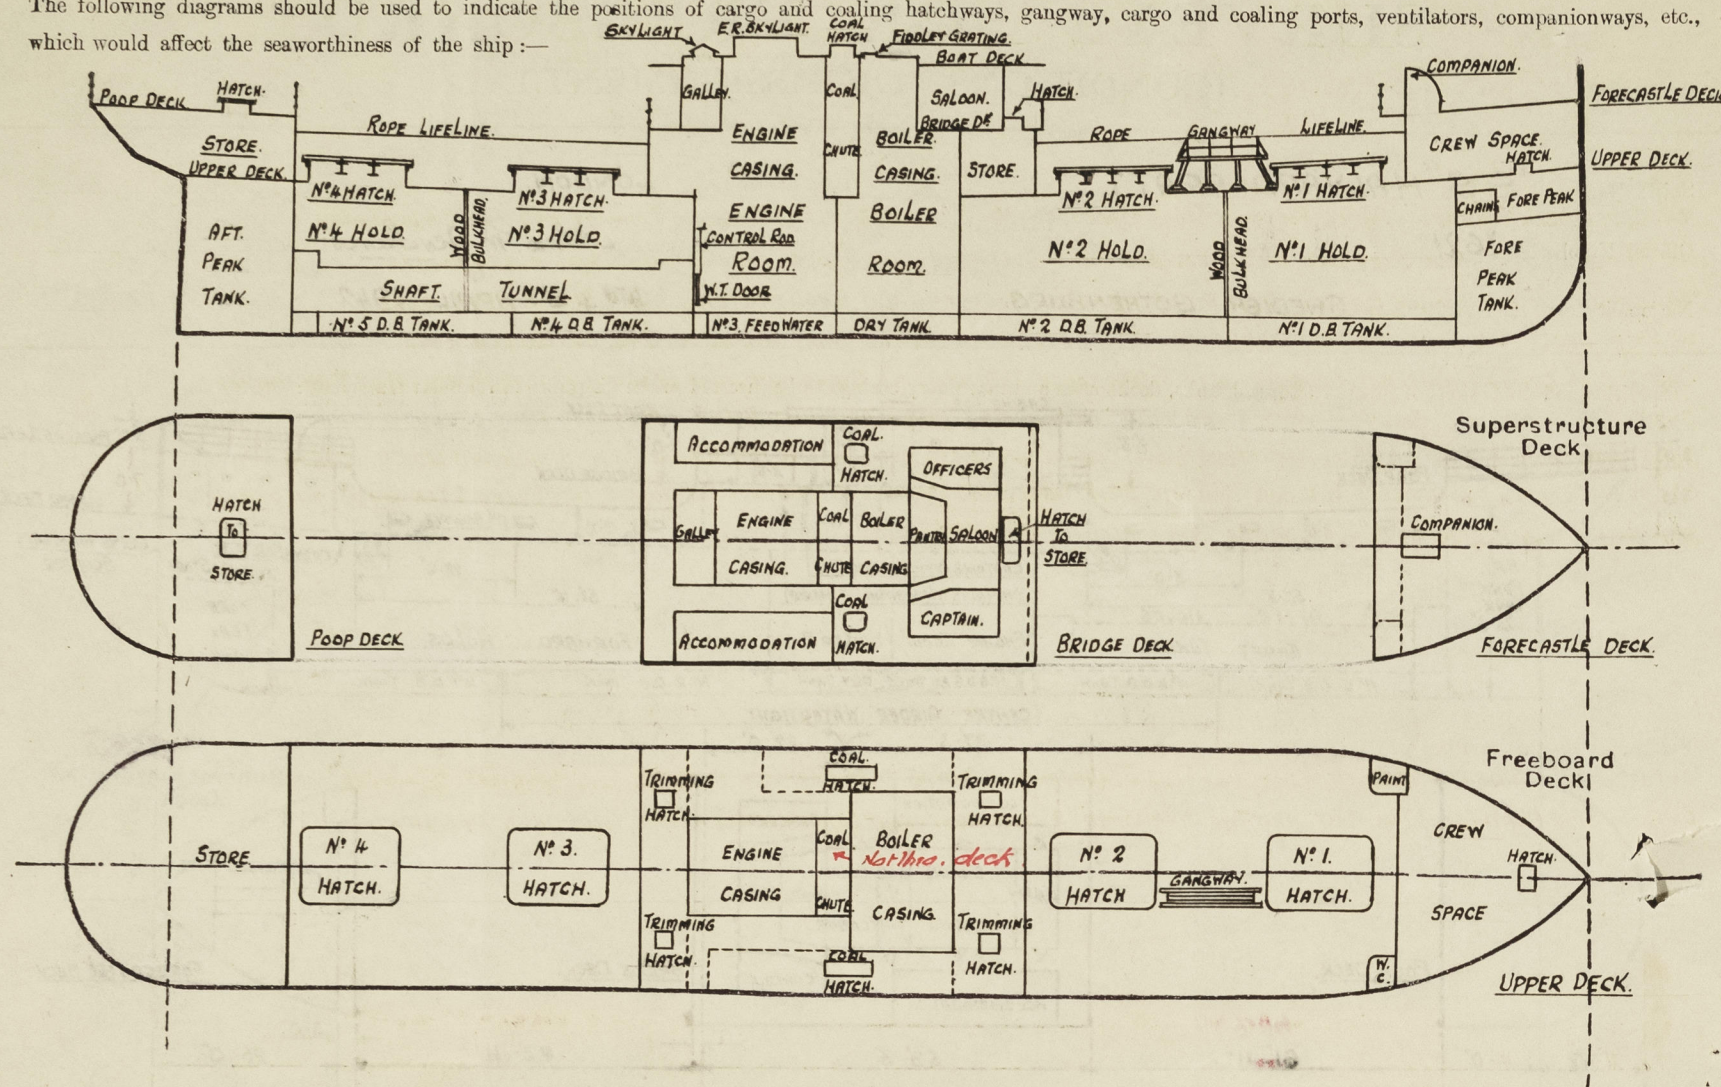 The following diagrams should be used to indicate the positions of cargo and coaling hatchways, gangway, cargo and coaling ports, ventilators, companionways, etc.,
which would affect the seaworthiness of the ship :—
SKYLIGHT
E.R. SKYLIGHT.
COAL
HATCH
FIDDLEY GRATING.
BOAT DECK
COMPANION.
POOP DECK
HATCH.
GALLEY.
COAL
SALOON.
HATCH.
FORECASTLE DECK
BRIDGE DK
ROPE LIFELINE.
ENGINE
CASING.
CHUTE
BOILER.
CASING.
ROPE
GANGWAY
LIFELINE.
CREW SPACE.
HATCH.
UPPER DECK.
STORE.
UPPER DECK.
STORE.
No 4 HATCH.
No 3 HATCH.
No 2 HATCH.
No 1 HATCH.
CHAIN
FORE PEAK
ENGINE
ROOM.
BOILER
ROOM.
AFT.
PEAK
TANK.
No 4 HOLD.
WOOD
BULKHEAD.
No 3 HOLD.
CONTROL ROD
W.T. DOOR
No 2 HOLD.
WOOD
BULKHEAD.
No 1 HOLD.
FORE
PEAK
TANK.
SHAFT. TUNNEL
No 5 D.B. TANK.
No 4 D.B. TANK.
No 3. FEEDWATER
DRY TANK.
No 2 D.B. TANK.
No 1 D.B. TANK.
Superstructure
Deck
HATCH
TO
STORE.
POOP DECK
ACCOMMODATION
COAL.
HATCH.
OFFICERS
GALLEY
ENGINE
CASING.
COAL
CHUTE
BOILER
CASING
PANTRY
SALOON
HATCH
TO
STORE.
COAL
HATCH.
ACCOMMODATION
CAPTAIN.
BRIDGE DECK
COMPANION.
FORECASTLE DECK.
Freeboard
Deck
TRIMMING
HATCH.
COAL.
HATCH.
TRIMMING
HATCH.
PAINT
STORE
No 4
HATCH.
No 3.
HATCH.
ENGINE
CASING
COAL
CHUTE
BOILER
CASING
Not thro. deck
No 2
HATCH
GANGWAY.
No 1.
HATCH.
CREW
SPACE
HATCH.
TRIMMING
HATCH.
COAL
HATCH.
TRIMMING
HATCH.
W.
C.
UPPER DECK.